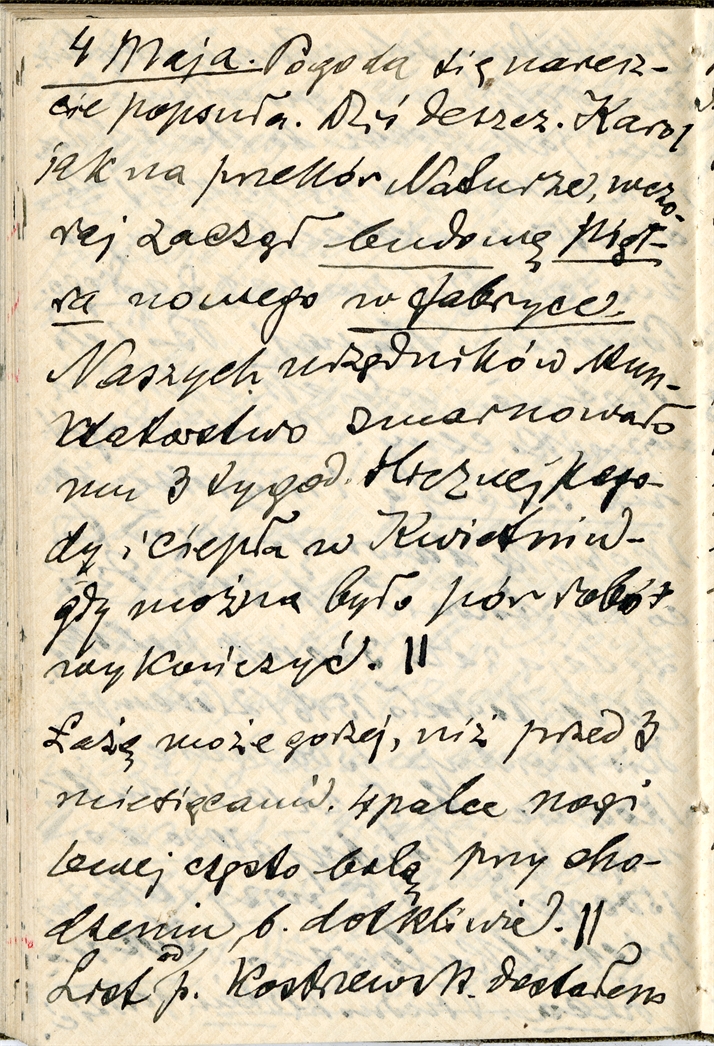 4 Maja. Pogoda się naresz-
cie popsuła. Dziś deszcz. Karol
jak na przekór Naturze, wczo-
raj zaczął budowę pięt-
ra nowego w fabryce.
Naszych urzędników kun-
ktatorstwo zmarnowało
mu 3 tygod. ślicznej pogo-
dy i ciepła w Kwietniu -
gdy można było pół robót
wykończyć. ||
Łażę może gorzej, niż przed 3
miesiącami. 4 palce nogi
lewej często bolą przy cho-
dzeniu b. dotkliwie. ||
List od p. Kostrzewsk. dostałem